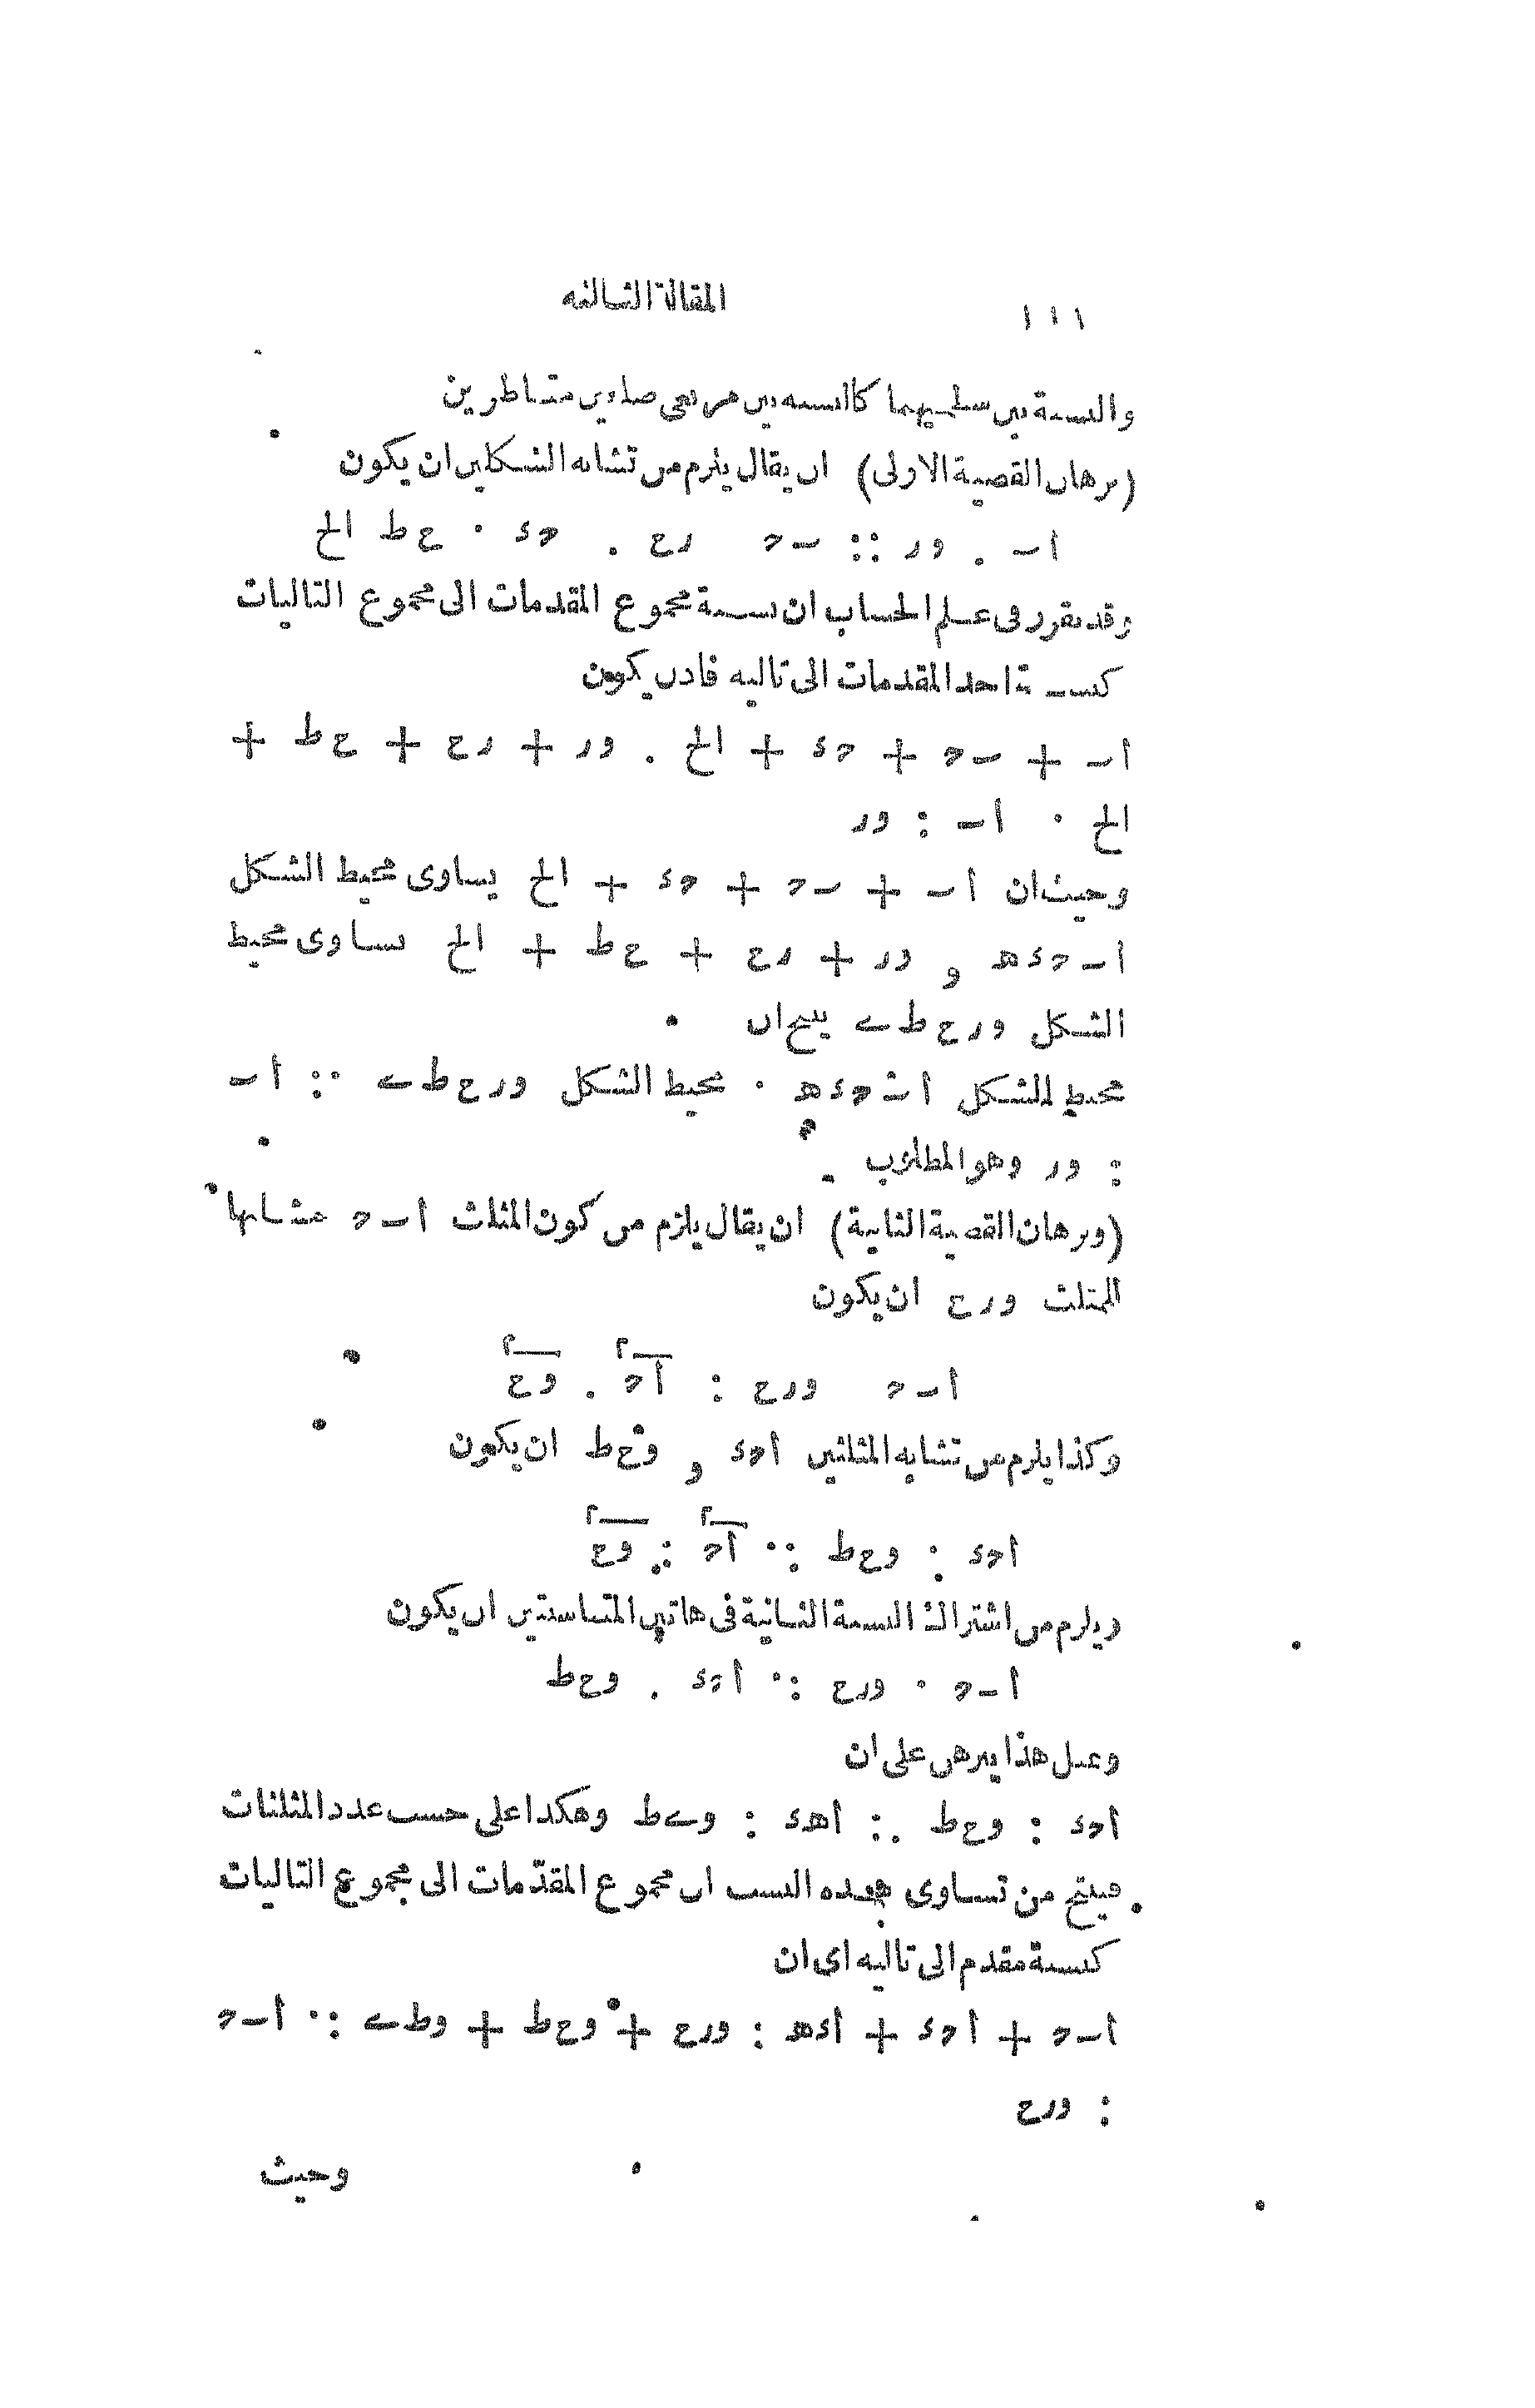 ١١١ المقالة الثالثه
والنسبة بين سطحيهما كالنسبه بين مربعى ضلعين متناظرين
(برهان القضية الاولى) ان يقال يلزم من تشابه الشكلين ان يكون
ا ب : و ر :: ب ح : ر ع : ح د : ع ط الخ
وقد تقرر فى علم الحساب ان نسبة مجموع المقدمات الى مجموع التاليات
كنسبة احد المقدمات الى تاليه فاذن يكون
ا ب + ب ح + ح د + الخ : و ر + ر ع + ع ط +
الخ : ا ب : و ر
وحيث ان ا ب + ب ح + ح د + الخ يساوى محيط الشكل
ا ب ح د ه و و ر + ر ع + ع ط + الخ يساوى محيط
الشكل و ر ع ط ى ينتج ان
محيط الشكل ا ب ح د ه : محيط الشكل و ر ع ط ى :: ا ب
: و ر وهو المطلوب
(وبرهان القضية الثانية) ان يقال يلزم من كون المثلث ا ب ح مشابها
للمثلث و ر ع ان يكون
ا ب ح و ر ع : ا ح٢ : و ع٢
وكذا يلزم من تشابه المثلثين ا ح د و و ع ط ان يكون
ا ح د : و ع ط :: ا ح٢ : و ع٢
ويلزم من اشتراك النسبة الثانية فى هاتين المتناسبتين ان يكون
ا ب ح : و ر ع :: ا ح د : و ع ط
وبمثل هذا يبرهن على ان
ا ح د : و ع ط :: ا ه د : و ى ط وهكذا على حسب عدد المثلثات
فينتج من تساوى هذه النسب ان مجموع المقدّمات الى مجموع التاليات
كنسبة مقدم الى تاليه اى ان
ا ب ح + ا ح د + ا د ه : و ر ع + و ع ط + و ط ى :: ا ب ح
: و ر ع
وحيث